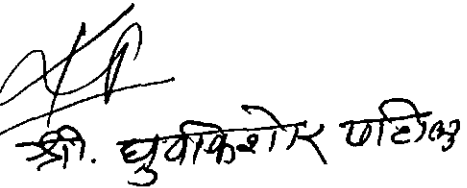 श्री. ध्रुवकिशोर पाटील